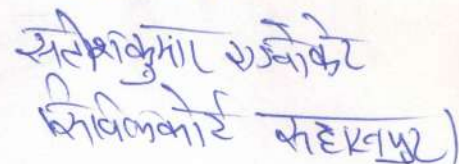 सतीशकुमार एडवोकेट
सिविलकोर्ट सहारनपुर)